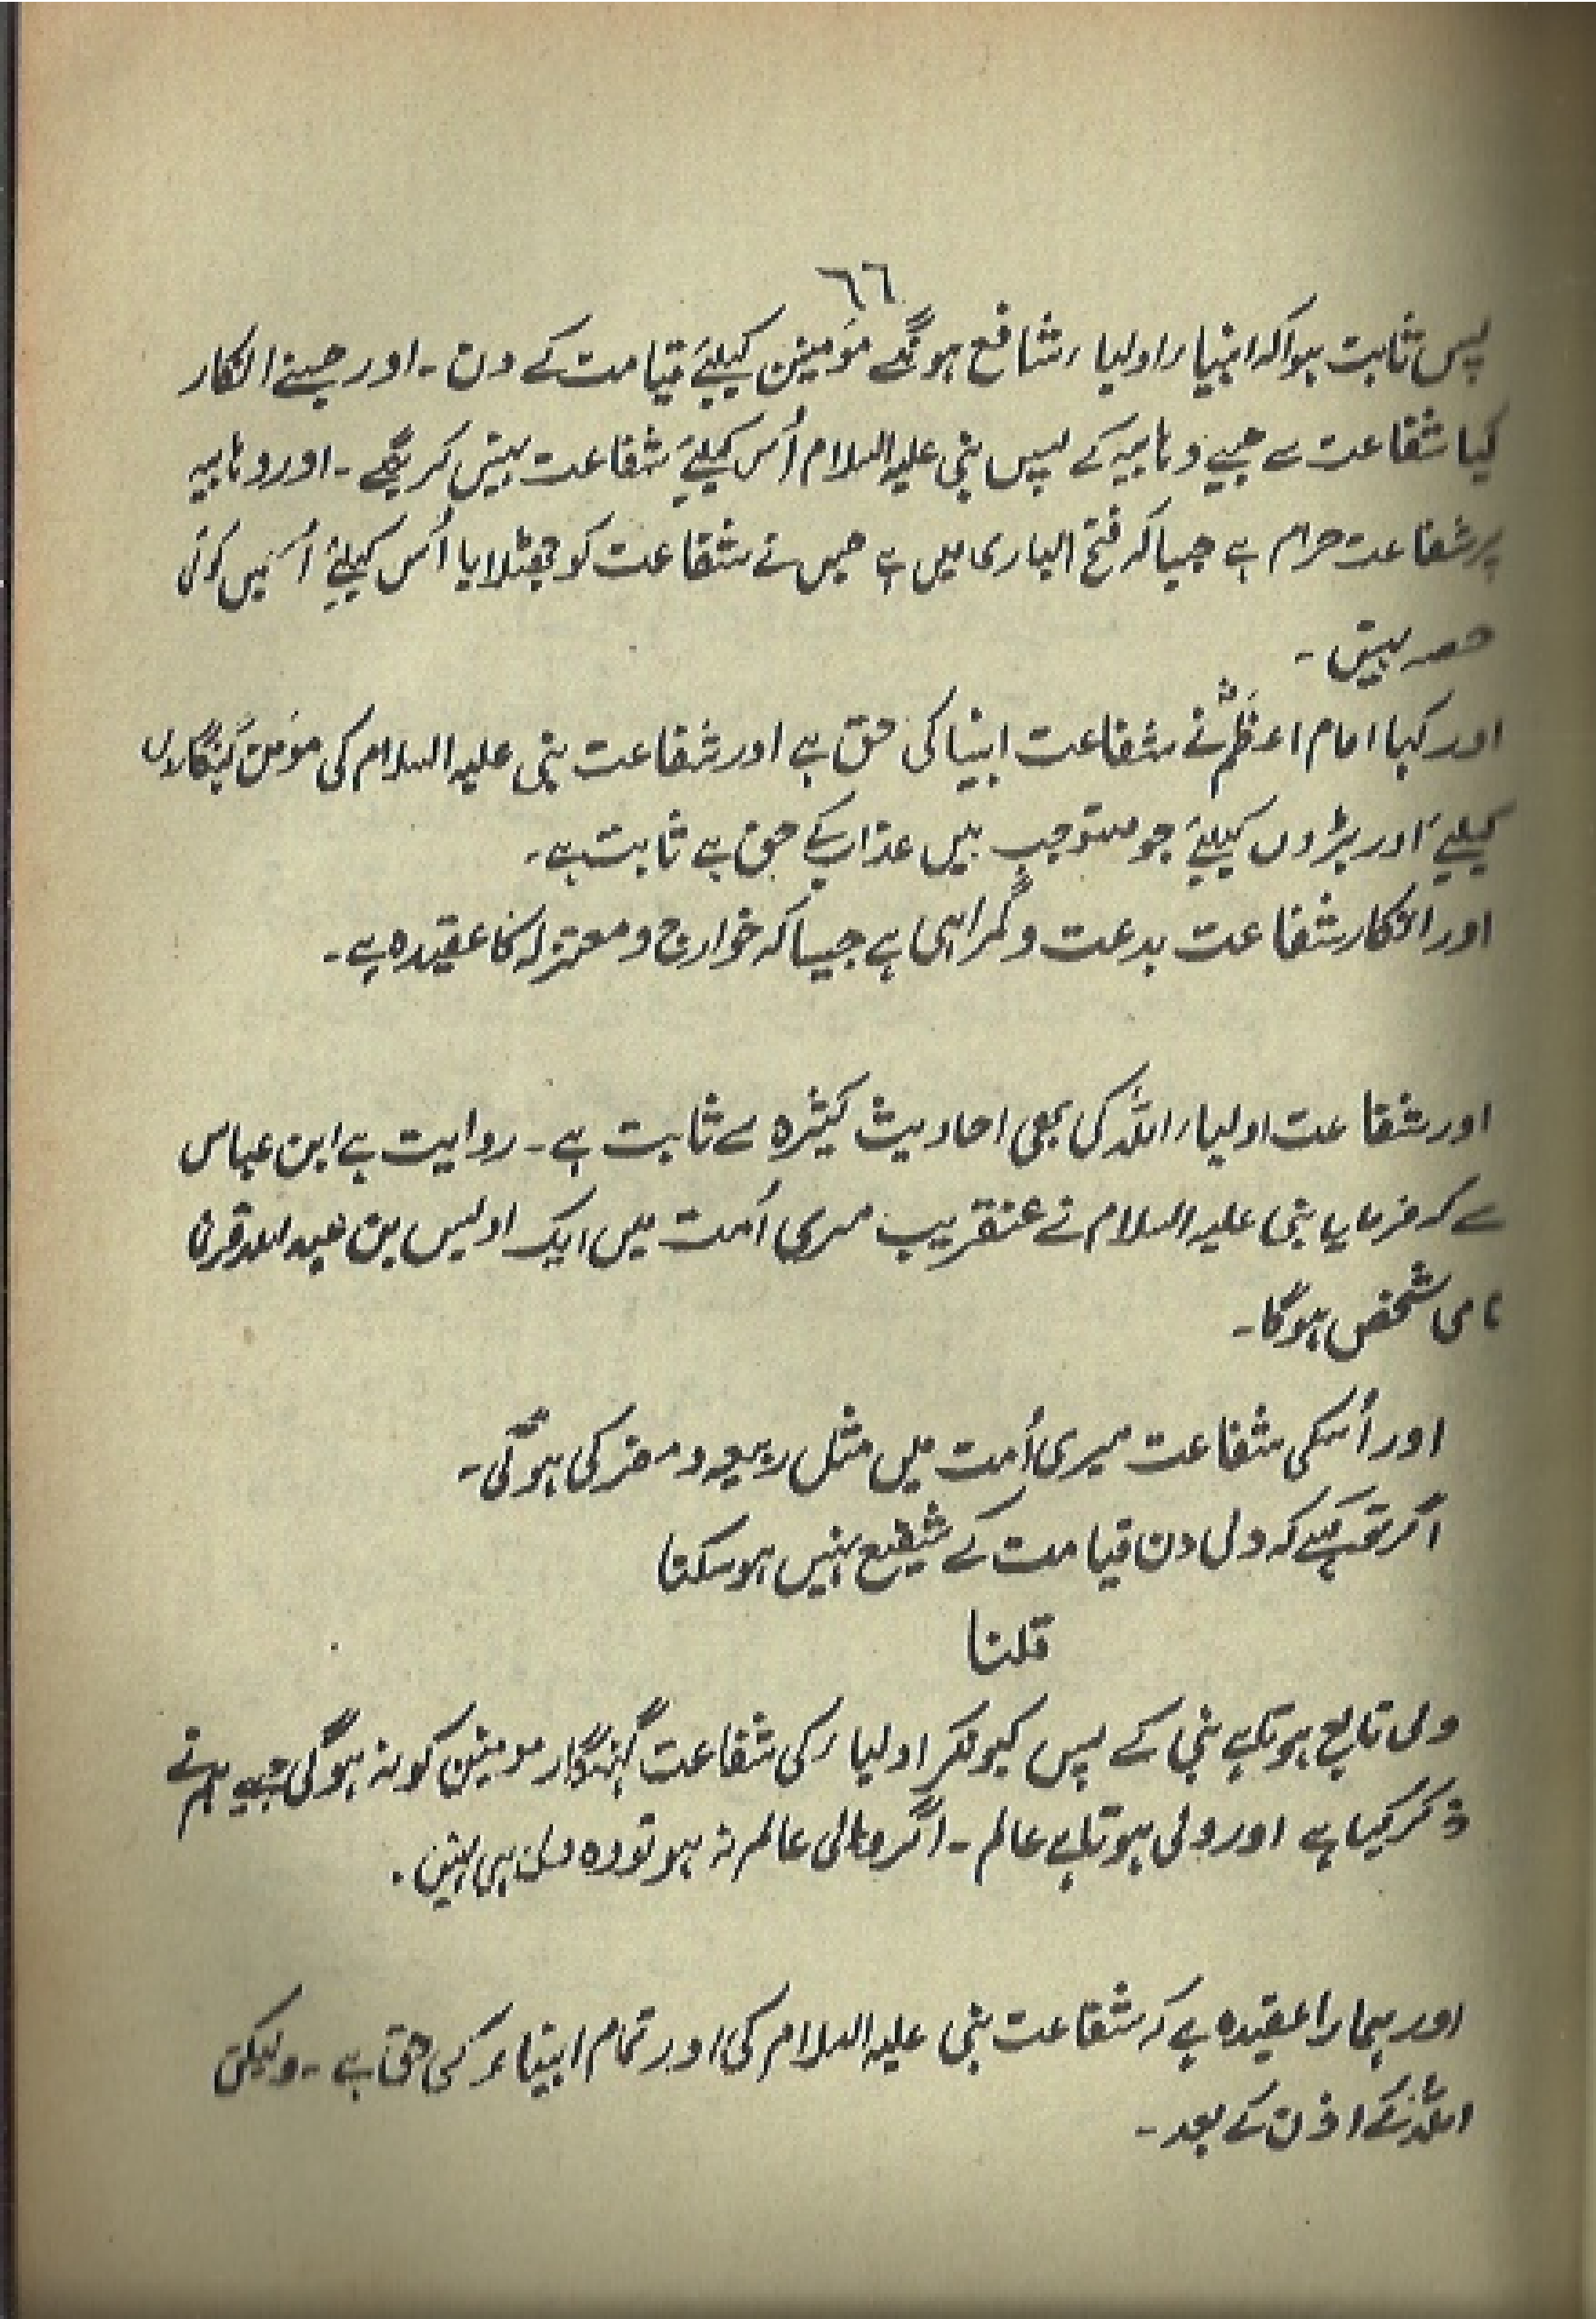 ٦٦
پس ثابت ہوا کہ انبیاء اولیاء شافع ہونگے مؤمنین کیلئے قیامت کے دن - اور جسنے انکار
کیا شفاعت سے جیسے وہابیہ کے پس نبی علیہ السلام اُس کیلئے شفاعت نہیں کرینگے - اور وہابیہ
پر شفاعت حرام ہے جیسا کہ فتح الباری میں ہے جس نے شفاعت کو جھٹلایا اُس کیلئے اُسمیں کوئی
حصہ نہیں -
اور کہا امام اعظمؒ نے شفاعت انبیا کی حق ہے اور شفاعت نبی علیہ السلام کی مؤمن گنہگاروں
کیلئے اور بڑوں کیلئے جو مستوجب ہیں عذاب کے حق ہے ثابت ہے -
اور انکار شفاعت بدعت و گمراہی ہے جیسا کہ خوارج و معتزلہ کا عقیدہ ہے -
اور شفاعت اولیاء اللہ کی بھی احادیث کثیرہ سے ثابت ہے - روایت ہے ابن عباس
سے کہ فرمایا نبی علیہ السلام نے عنقریب میری اُمت میں ایک اویس بن عبد اللہ قرنی
نامی شخص ہوگا -
اور اُسکی شفاعت میری اُمت میں مثل ربیعہ و مضر کی ہوگی -
اگر تو کہے کہ ولی دن قیامت کے شفیع نہیں ہو سکتا
قلنا
ولی تابع ہوتا ہے نبی کے پس کیونکر اولیاء کی شفاعت گنہگار مومنین کو نہ ہوگی جیسے ہم نے
ذکر کیا ہے اور ولی ہوتا ہے عالم - اگر ولی عالم نہ ہو تو وہ ولی ہی نہیں .
اور ہمارا عقیدہ ہے کہ شفاعت نبی علیہ السلام کی اور تمام انبیاء کی حق ہے - ولیکن
اللہ کے اذن کے بعد -